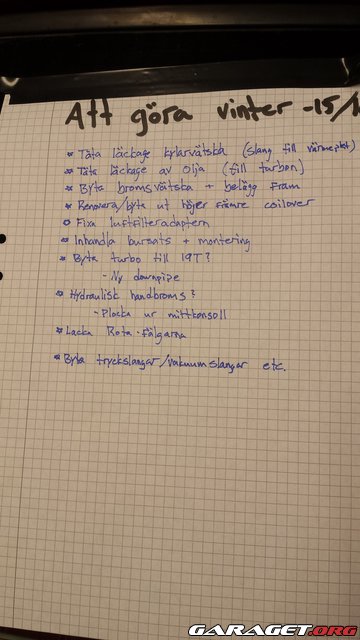 Att göra vinter -15/1
* Täta läckage kylarvätska (slang till värmepket)
* Täta läckage av olja (till turbon)
* Byta bromsvätska + belägg fram
* Renovera/byta ut höger främre coilover
* Fixa luftfilteradaptern
* Inhandla bursats + montering
* Byta turbo till 19T?
- Ny downpipe
* Hydraulisk handbroms?
- Plocka ur mittkonsoll
* Lacka Rota-fälgarna
* Byta tryckslangar/vakuumslangar etc.
GARAGET.ORG